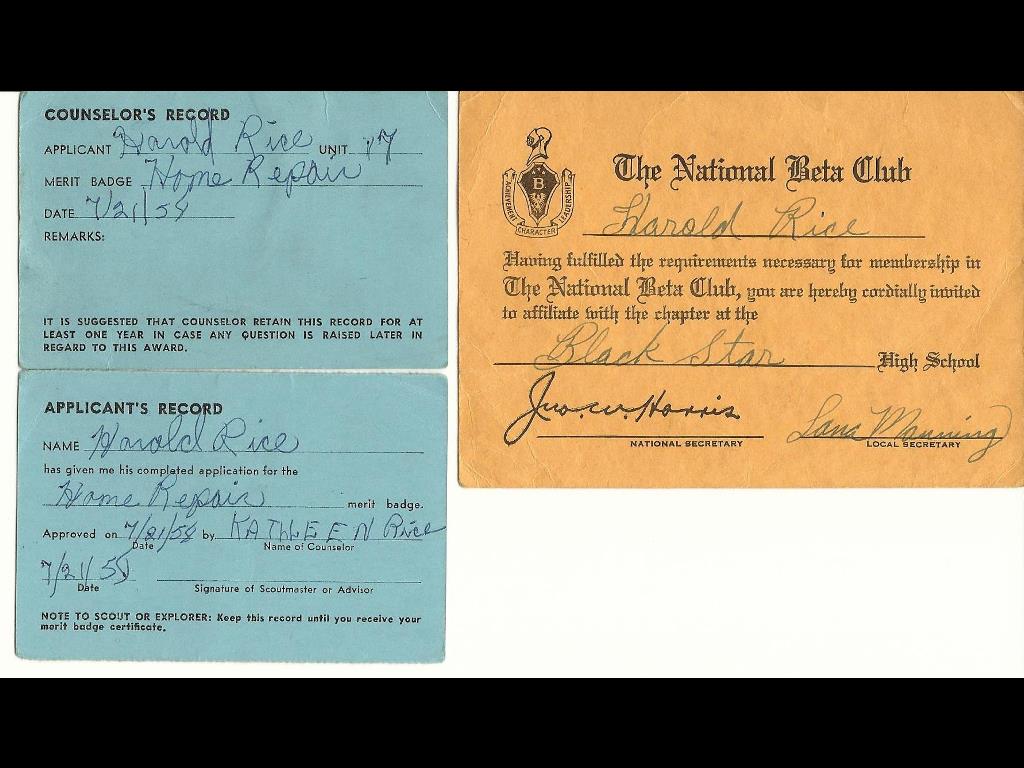 COUNSELOR'S RECORD
APPLICANT Harold Rice UNIT 17
MERIT BADGE Home Repair
DATE 7/21/58
REMARKS:
IT IS SUGGESTED THAT COUNSELOR RETAIN THIS RECORD FOR AT
LEAST ONE YEAR IN CASE ANY QUESTION IS RAISED LATER IN
REGARD TO THIS AWARD.
APPLICANT'S RECORD
NAME Harold Rice
has given me his completed application for the
Home Repair merit badge.
Approved on 7/21/58 by KATHLEEN Rice
Date Name of Counselor
7/21/58
Date Signature of Scoutmaster or Advisor
NOTE TO SCOUT OR EXPLORER: Keep this record until you receive your
merit badge certificate.
B
ACHIEVEMENT
CHARACTER
LEADERSHIP
The National Beta Club
Harold Rice
Having fulfilled the requirements necessary for membership in
The National Beta Club, you are hereby cordially invited
to affiliate with the chapter at the
Black Star High School
Jno. W. Harris Lana Manning
NATIONAL SECRETARY LOCAL SECRETARY